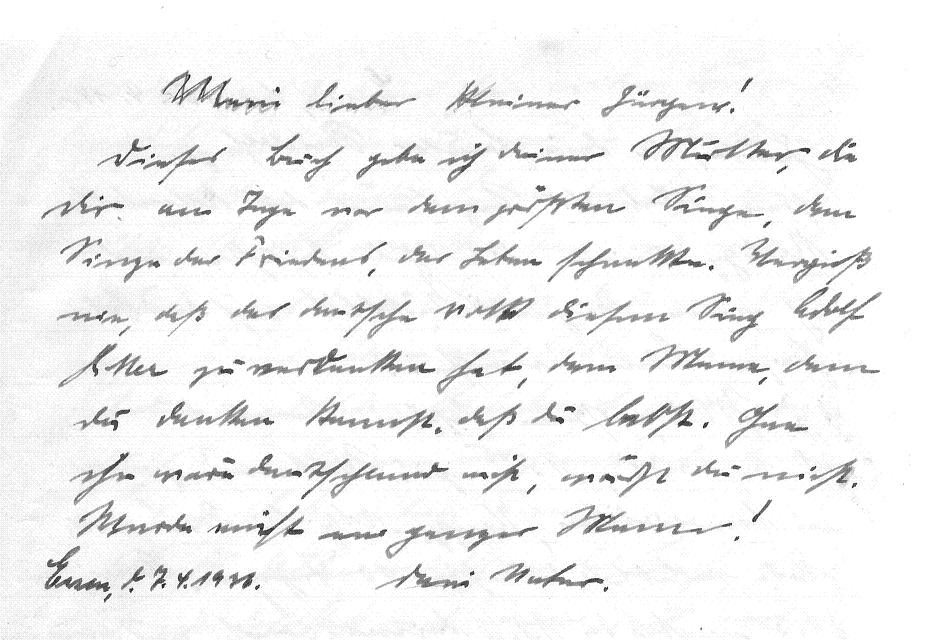 Mein lieber kleiner Jürgen!
Dieses Buch gebe ich deiner Mutter, die
dir am Tage vor dem größten Siege, dem
Siege des Friedens, das Leben schenkte. Vergiß
nie, daß das deutsche Volk diesen Sieg Adolf
Hitler zu verdanken hat, dem Manne, dem
du danken kannst, daß du lebst. Ohne
ihn wäre Deutschland nicht, wärst du nicht.
Werde auch ein ganzer Mann!
Essen, d. 7.4.1936. Dein Vater.